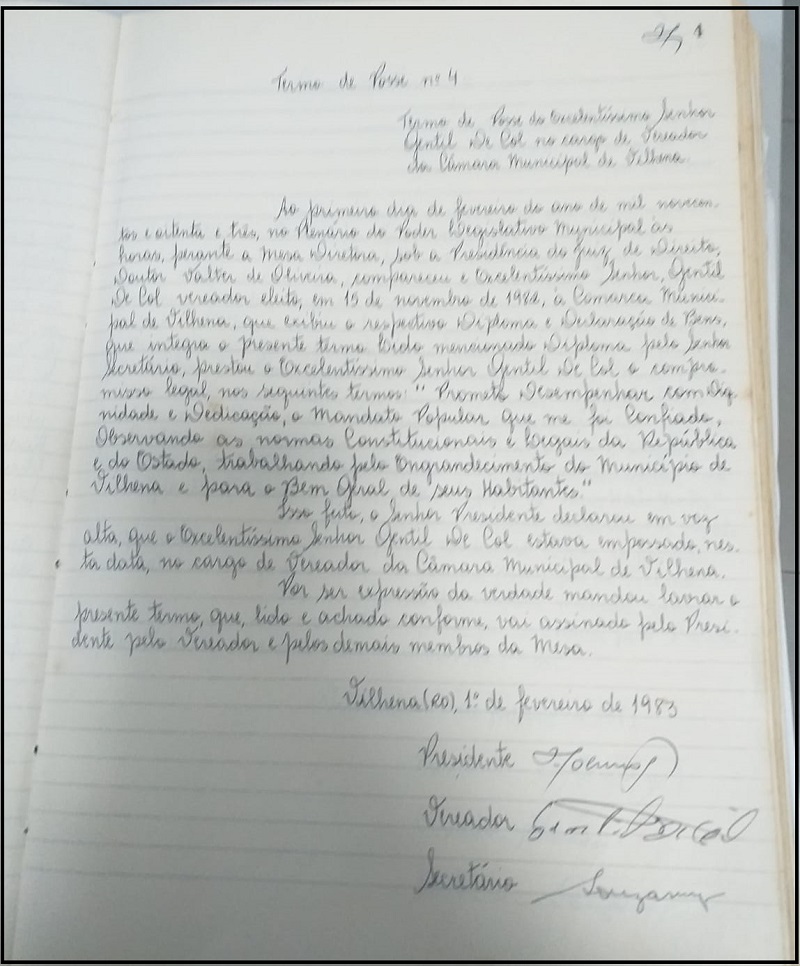 1
Termo de Posse nº 4
Termo de Posse do Excelentíssimo Senhor
Gentil De Col no cargo de Vereador
da Câmara Municipal de Vilhena
Ao primeiro dia de fevereiro do ano de mil novecen-
tos e oitenta e três, no Plenário do Poder Legislativo Municipal às
horas, perante a Mesa Diretora, sob a Presidência do Juiz de Direito,
Doutor Valter de Oliveira, compareceu o Excelentíssimo Senhor, Gentil
De Col vereador eleito, em 15 de novembro de 1982, à Comarca Munici-
pal de Vilhena, que exibiu o respectivo Diploma e Declaração de Bens,
que integra o presente termo Lido mencionado Diploma pelo Senhor
Secretário, prestou o Excelentíssimo Senhor Gentil De Col o compro-
misso legal, nos seguintes termos: "Prometo Desempenhar com Dig
nidade e Dedicação, o Mandato Popular que me foi Confiado,
Observando as normas Constitucionais e Legais da República
e do Estado, trabalhando pelo Engrandecimento do Município de
Vilhena e para o Bem Geral de seus Habitantes"
Isso feito, o Senhor Presidente declarou em voz
alta, que o Excelentíssimo Senhor Gentil De Col estava empossado, nes-
ta data, no cargo de Vereador da Câmara Municipal de Vilhena.
Por ser expressão da verdade mandou lavrar o
presente termo, que, lido e achado conforme, vai assinado pelo Presi-
dente pelo Vereador e pelos demais membros da Mesa.
Vilhena (RO), 1º de fevereiro de 1983
Presidente
Vereador
Secretário